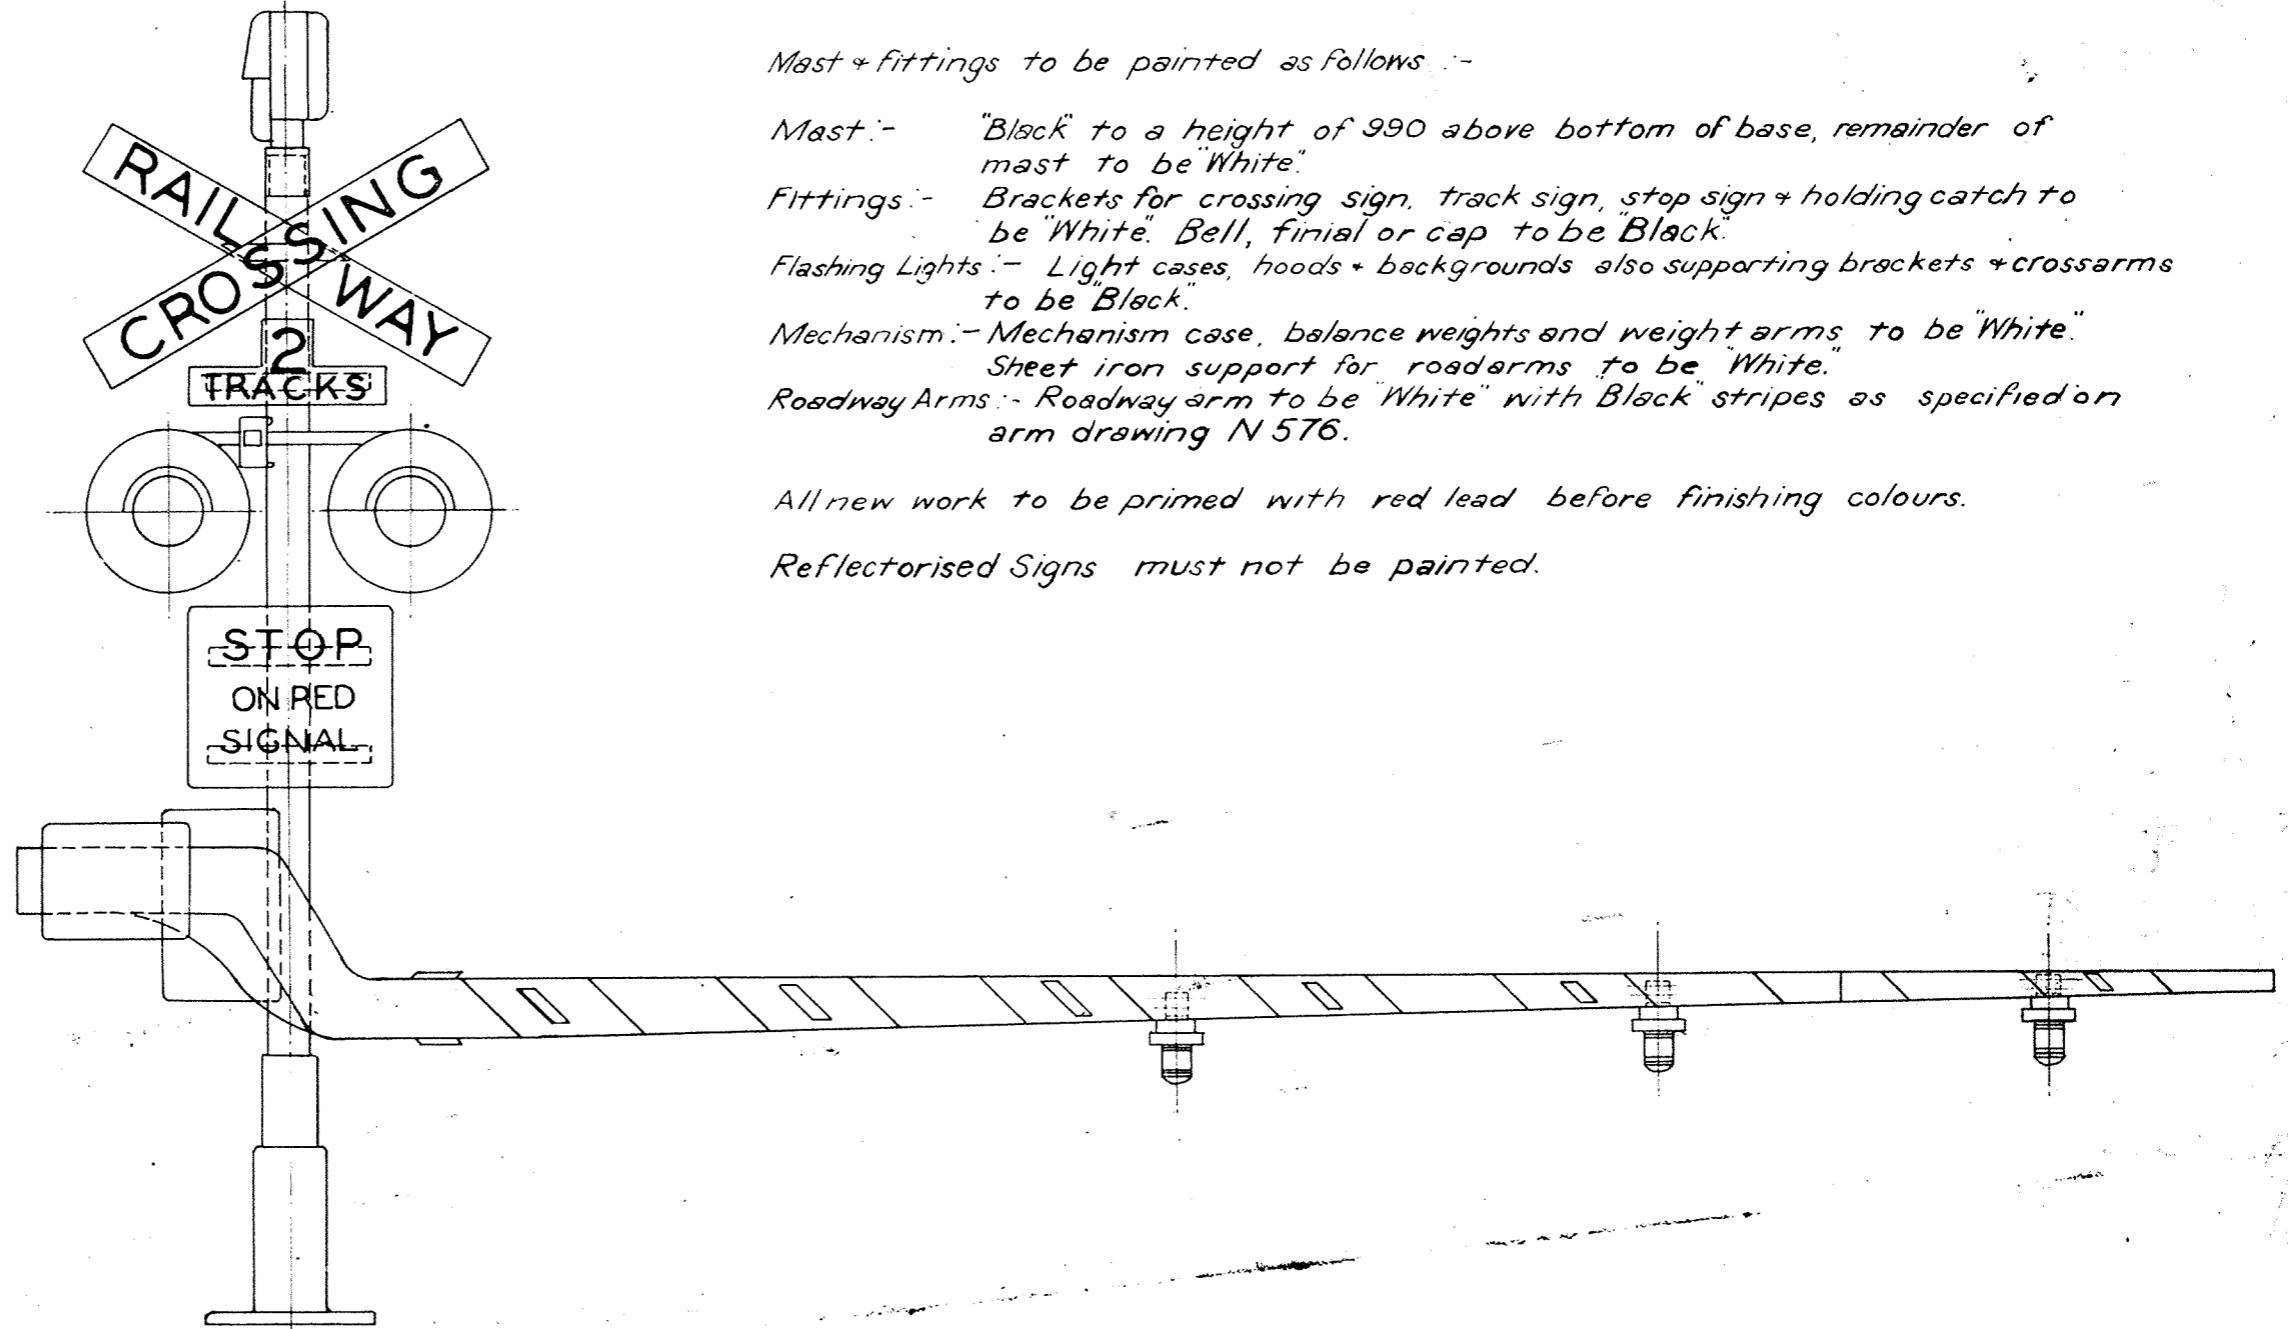 RAIL WAY
CROSSING
2
TRACKS
STOP
ON RED
SIGNAL
Mast & fittings to be painted as follows :-
Mast :- "Black" to a height of 990 above bottom of base, remainder of
mast to be "White".
Fittings :- Brackets for crossing sign, track sign, stop sign & holding catch to
be "White". Bell, finial or cap to be "Black".
Flashing Lights :- Light cases, hoods & backgrounds also supporting brackets & crossarms
to be "Black".
Mechanism :- Mechanism case, balance weights and weight arms to be "White".
Sheet iron support for roadarms to be "White."
Roadway Arms :- Roadway arm to be "White" with "Black" stripes as specified on
arm drawing N 576.
All new work to be primed with red lead before finishing colours.
Reflectorised Signs must not be painted.